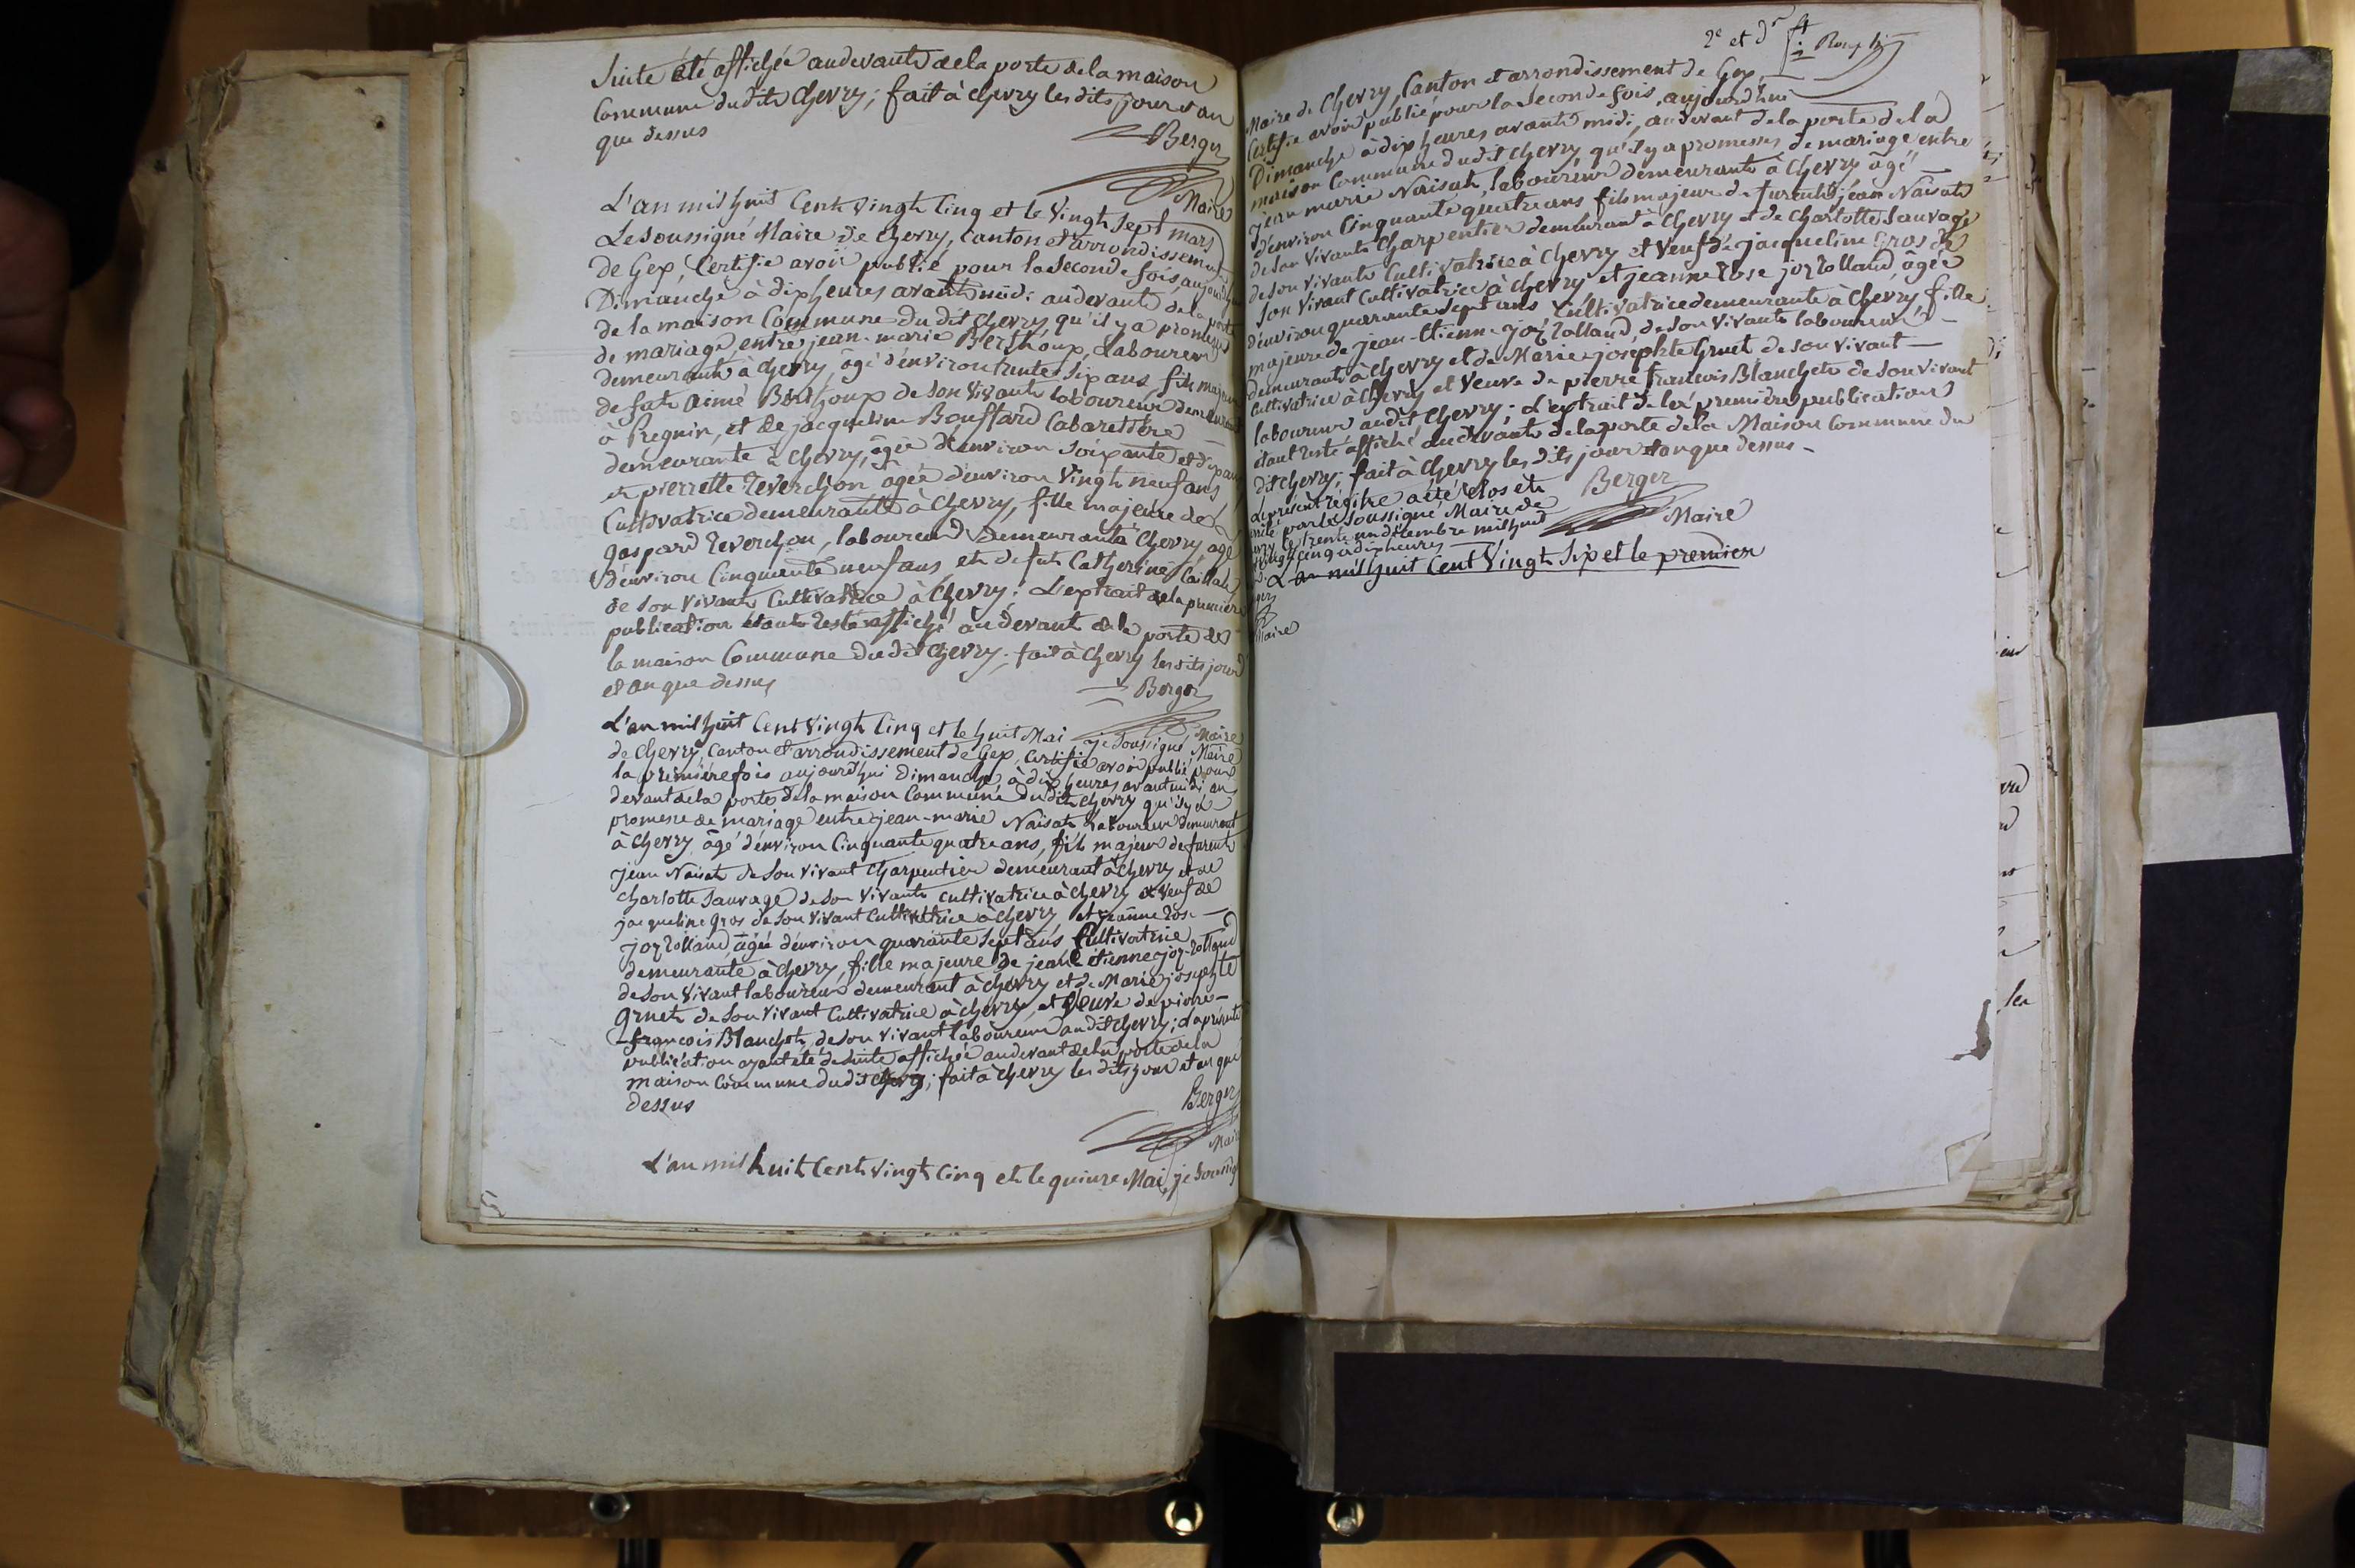 Suite été affichée audevant de la porte de la maison
Commune du dit Chevry; fait à Chevry les dits jour et an
que dessus
Berger
Maire
L'an mil huit Cent vingt Cinq et le Vingt Sept mars
Le Soussigné Maire de Chevry, Canton et arrondissement
de Gex, Certifie avoir publié pour la Seconde fois, aujourd'hui
Dimanche à dix heures avant midi audevant de la porte
de la maison Commune du dit Chevry, qu'il y a promesses
de mariage entre jean-marie Berthoux, Laboureur
demeurant à Chevry, âgé d'environ trente Six ans, fils majeur
de fut aimé Berthoux de Son Vivant laboureur demeurant
à Pregnin, et de jacqueline Bouffard Cabaretière
demeurante à Chevry, âgée d'environ Soixante et dix ans
et pierrette Reverchon âgée d'environ Vingt neuf ans
Cultivatrice demeurante à Chevry, fille majeure de
gaspard Reverchon, laboureur demeurant à Chevry, âgé
d'environ Cinquante neuf ans et de fut Catherine
de Son Vivant Cultivatrice à Chevry; L'extrait de la première
publication étant Resté affiché audevant de la porte de
la maison Commune du dit Chevry; fait à Chevry les dits jour
et an que dessus
Berger
Maire
L'an mil huit Cent Vingt Cinq et le huit Mai je Soussigné, Maire
de Chevry, Canton et arrondissement de Gex, Certifie avoir publié pour
la première fois aujourd'hui Dimanche à dix heures avant midi au
devant de la porte de la maison Commune du dit Chevry qu'il y a
promesse de mariage entre jean-marie Naisat Laboureur demeurant
à Chevry âgé d'environ Cinquante quatre ans, fils majeur de furent
jean Naisat de Son Vivant Charpentier demeurant à Chevry et de
Charlotte Sauvage de Son Vivant Cultivatrice à Chevry et Veuf de
jacqueline Gros de Son Vivant Cultivatrice à Chevry et jeanne Rose
joz Rolland, âgée d'environ quarante Sept ans Cultivatrice
demeurante à Chevry, fille majeure de jean étienne joz-Rolland
de Son Vivant laboureur demeurant à Chevry et de Marie josephte
gruet de Son Vivant Cultivatrice à Chevry, et Veuve de pierre
francois Blanchet, de Son Vivant laboureur audit Chevry; La présente
publication ayant été de Suite affichée audevant de la porte de la
maison Commune du dit Chevry; fait à Chevry les dits jour et an que
dessus
Berger
Maire
L'an mil huit Cent Vingt Cinq et le quinze Mai, je Soussigné
2e et dr
Maire de Chevry, Canton et arrondissement de Gex,
Certifie avoir publié pour la Seconde fois, aujourd'hui
Dimanche à dix heures avant midi, audevant de la porte de la
maison Commune du dit Chevry qu'il y a promesses de mariage entre
jean marie Naisat, laboureur demeurant à Chevry âgé
d'environ Cinquante quatre ans fils majeur de furent jean Naisat
de Son Vivant Charpentier demeurant à Chevry et de Charlotte Sauvage
de Son Vivant Cultivatrice à Chevry et Veuf de jacqueline Gros de
Son Vivant Cultivatrice à Chevry et jeanne Rose joz Rolland, âgée
d'environ quarante Sept ans Cultivatrice demeurante à Chevry, fille
majeure de jean-Etienne joz Rolland, de Son Vivant laboureur
demeurant à Chevry et de Marie josephte Gruet de Son Vivant
Cultivatrice à Chevry et Veuve de pierre francois Blanchet de Son Vivant
laboureur audit Chevry; L'extrait de la première publication
étant Resté affiché audevant de la porte de la Maison Commune du
dit Chevry; fait à Chevry les dits jour et an que dessus
Berger
Maire
Le présent registre a été Clos et
par le Soussigné Maire de
Chevry le trente un décembre mil huit
cent vingt Cinq à dix heures
L'an mil huit Cent Vingt Six et le premier
Berger
Maire